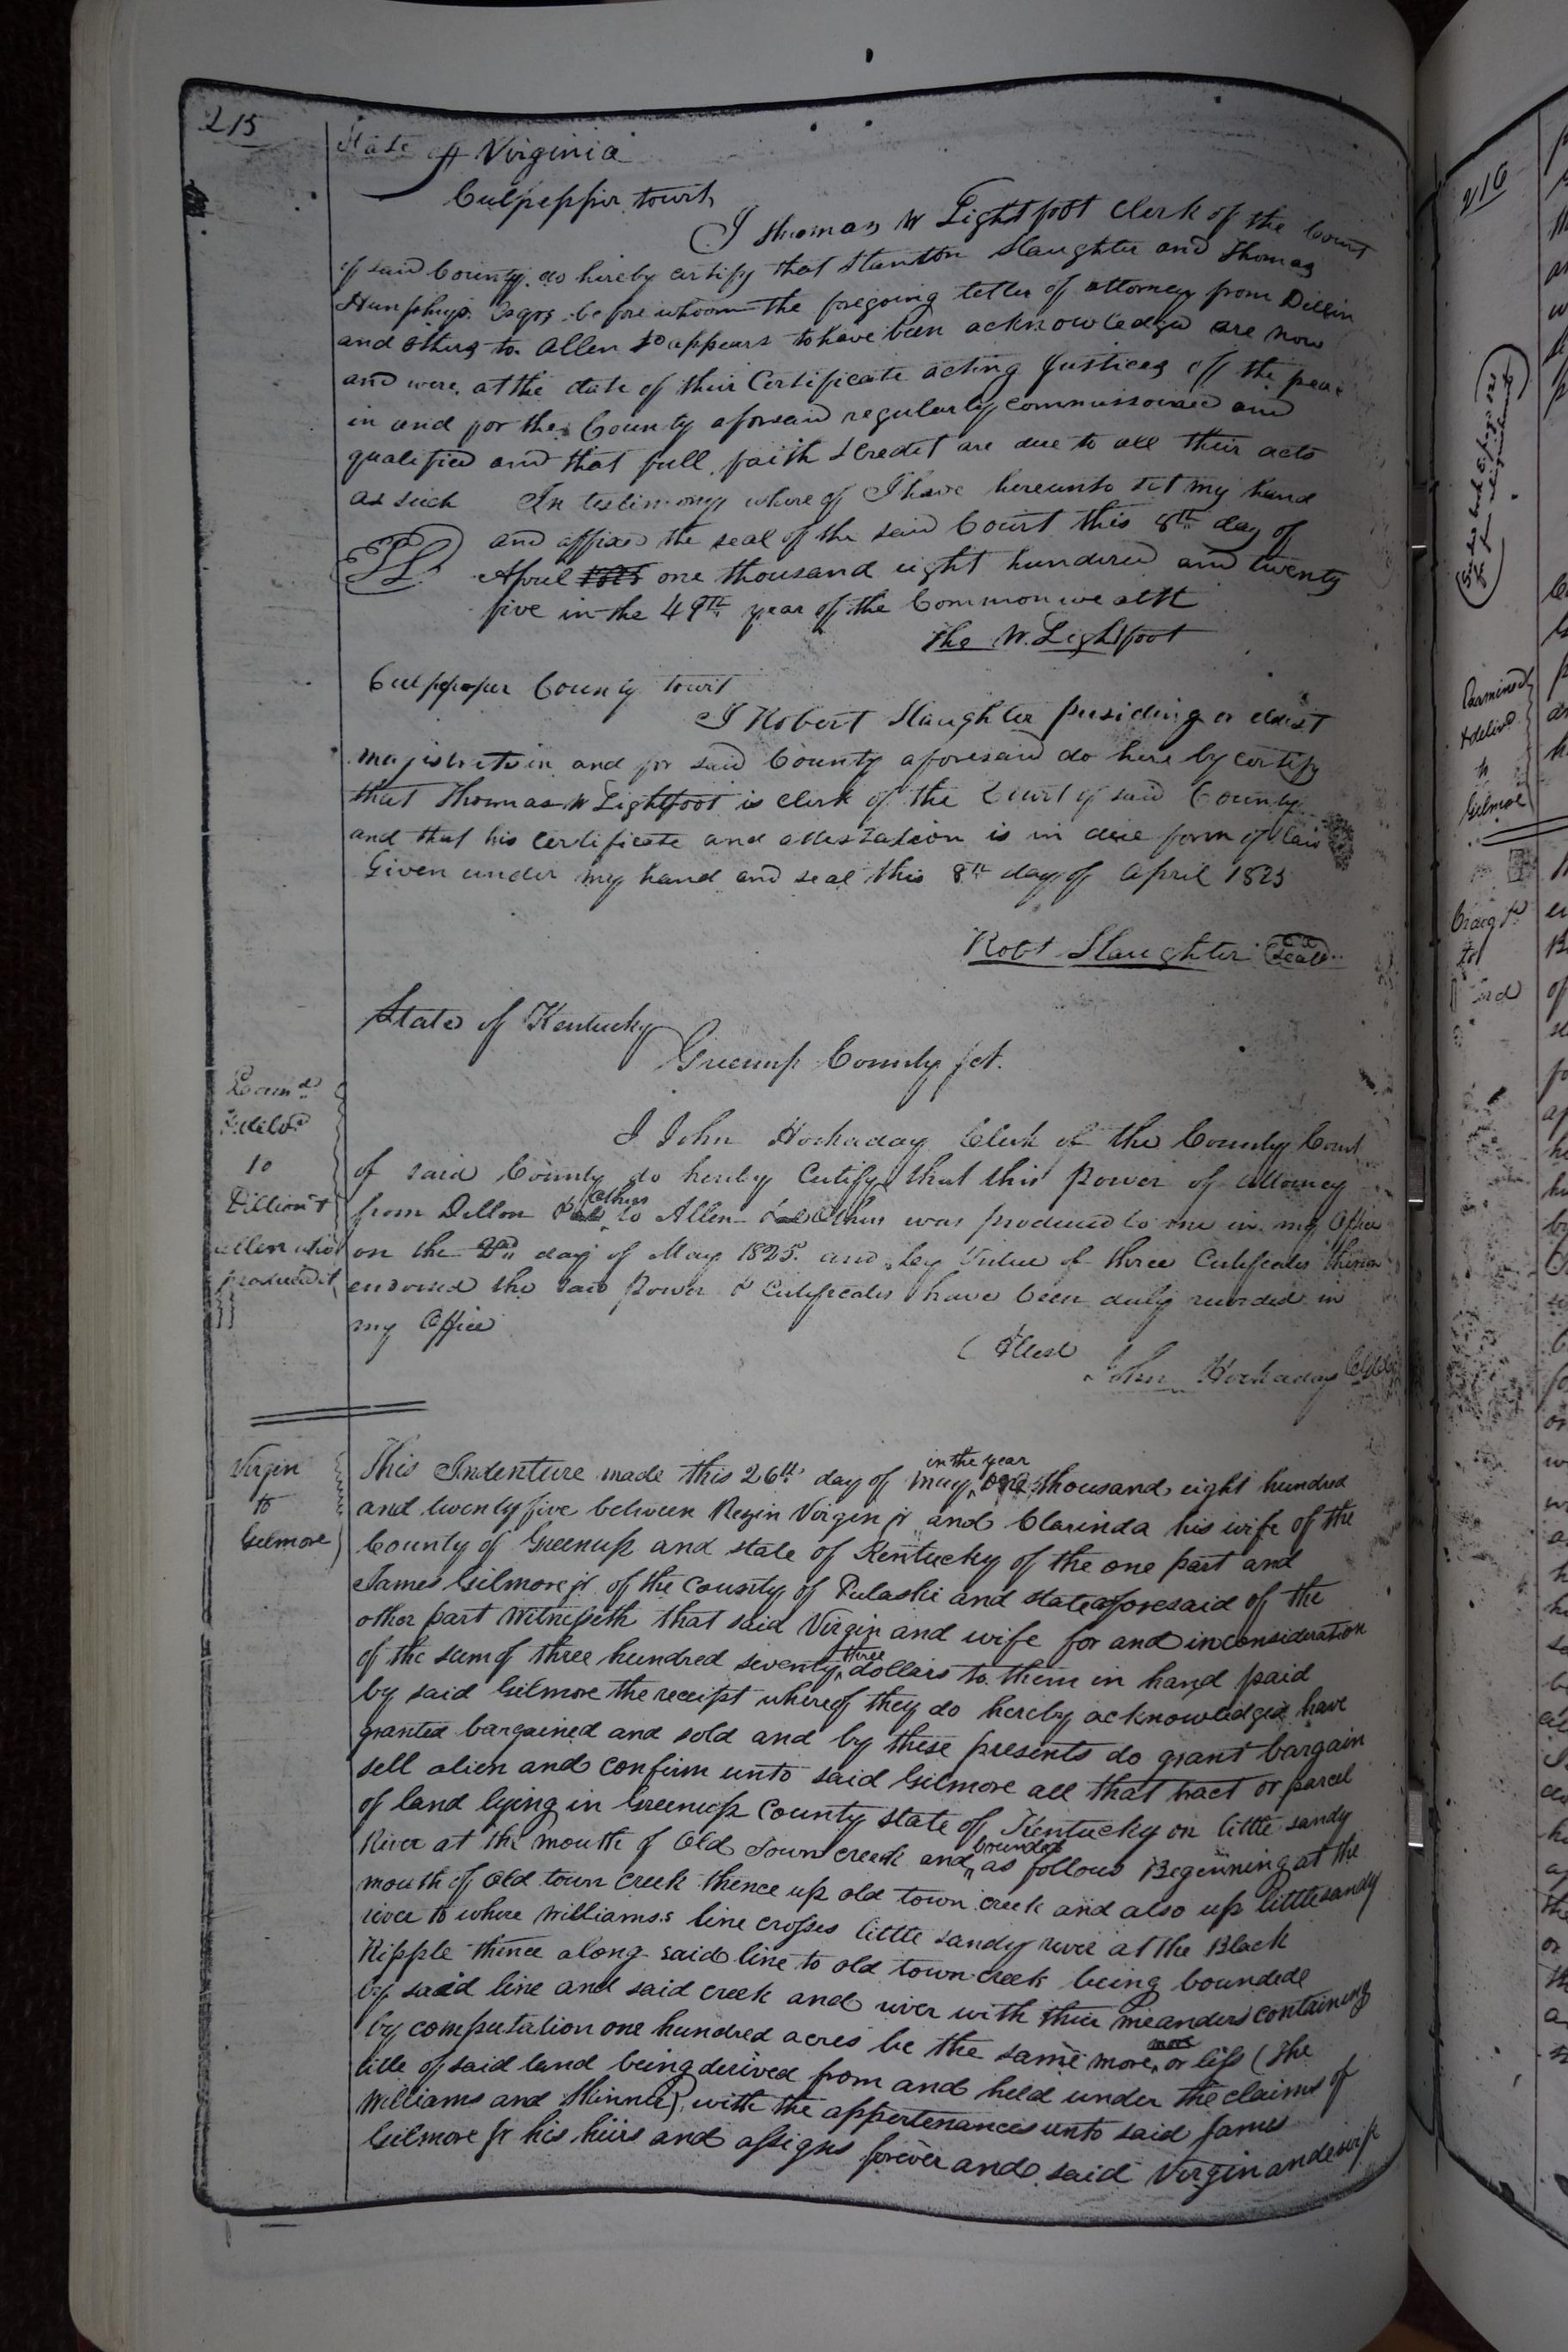 215
State of Virginia
Culpepper towit
I Thomas W Lightfoot Clerk of the Court
of said County do hereby certify that Stanton Slaughter and Thomas
Humphrys Esqrs before whom the foregoing letter of attorney from Dillin
and others to Allen & appears to have been acknowledged are now
and were at the date of their Certificate acting Justices of the peace
in and for the County aforsaid regularly commissioned and
qualified and that full faith & credit are due to all their acts
as such In testimony where of I have hereunto set my hand
and affixed the seal of the said Court this 8th day of
April 1825 one thousand eight hundred and twenty
five in the 49th year of the Common we alth
Tho W. Lightfoot
Culppeper County towit
I Robert Slaughter presiding or eldest
magistrate in and for said County aforesaid do here by certify
that Thomas W Lightfoot is clerk of the Court of said County
and that his certificate and attestation is in due form of law
Given under my hand and seal this 8th day of April 1825
Robt Slaughter Seal
State of Kentucky
Greenup County sct.
Exam'd
& deliv'd
to
Dillion &
allen who
produced it
I John Hockaday Clerk of the County Court
of said County do hereby Certify that this Power of attorney
from Dillon & others to Allen & others was produced to me in my Office
on the 2nd day of May 1825 and by Virtue of three Certificates thereon
endorsed the said Power & Certificates have been duly recorded in
my Office
Attest
John Hockaday Clk
Virgin
to
Gilmore
This Indenture made this 26th day of may in the year one thousand eight hundred
and twenty five between Rezin Virgin jr and Clarinda his wife of the
County of Greenup and state of Kentucky of the one part and
James Gilmore jr of the County of Pulaski and state aforesaid of the
other part Witnesseth that said Virgin and wife for and in consideration
of the sum of three hundred seventy three dollars to them in hand paid
by said Gilmore the receipt whereof they do hereby acknowledged have
granted bargained and sold and by these presents do grant bargain
sell alien and confirm unto said Gilmore all that tract or parcel
of land lying in Greenup County state of Kentucky on little sandy
River at the mouth of Old Town creek and bounded as follows Beginning at the
mouth of Old town Creek thence up old town creek and also up little sandy
river to where Williams.s line crosses little sandy river at the Black
Ripple thence along said line to old town creek being bounded
by said line and said creek and river with their meanders containing
by computation one hundred acres be the same more or less (The
title of said land being derived from and held under the claims of
Williams and Skinner) with the appertenances unto said James
Gilmore jr his heirs and assigns forever and said Virgin and wife
216
Examined
& deliv'd
to
Gilmore
Craig
to